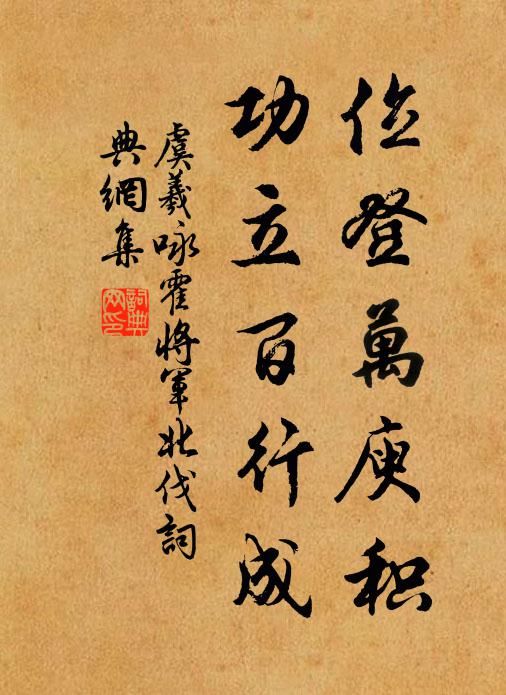 位登萬庾积
功立百行成
虞羲咏霍將軍北伐詞
典網集
詞典
网印